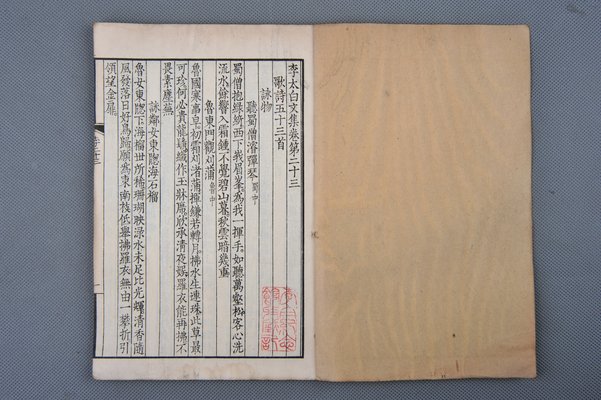 李太白文集卷第二十三
歌詩五十三首
詠物
聽蜀僧濬彈琴 蜀中
蜀僧抱綠綺西下峨眉峯為我一揮手如聽萬壑松客心洗
流水餘響入霜鐘不覺碧山暮秋雲暗幾重
魯東門觀刈蒲 魯中
魯國寒事早初霜刈渚蒲揮鎌若轉月拂水生連珠此草最
可珍何必貴龍鬚織作玉牀席欣承清夜娛羅衣能再拂不
畏素塵蕪
詠鄰女東牕海石榴
魯女東牕下海榴世所稀珊瑚映淥水未足比光輝清香隨
風發落日好鳥歸願為東南枝低舉拂羅衣無由一攀折引
領望金扉